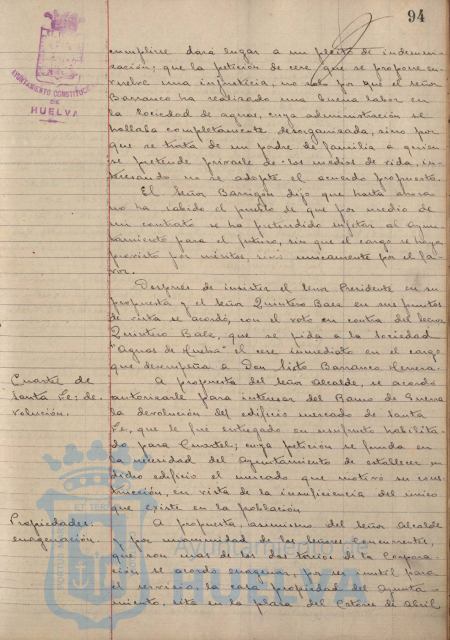 94
AYUNTAMIENTO CONSTITUCIONAL
DE
HUELVA
cumplirse dará lugar a un pleito de indemni-
zación; que la petición de cese que se propone en-
vuelve una injusticia, no solo por que el señor
Barranco ha realizado una buena labor en
la Sociedad de aguas, cuya administración se
hallaba completamente desorganizada, sino por
que se trata de un padre de familia a quien
se pretende privarle de los medios de vida, in-
teresando no se adopte el acuerdo propuesto.
El Señor Barrigón dijo que hasta ahora
no ha sabido el pueblo de que por medio de
un contrato se ha pretendido sujetar al Ayun-
tamiento para el futuro, sin que el cargo se haya
provisto por méritos, sino unicamente por el fa-
vor.
Después de insistir el Señor Presidente en su
propuesta y el Señor Quintero Baez en sus puntos
de vista se acordó, con el voto en contra del Señor
Quintero Baez, que se pida a la Sociedad
"Aguas de Huelva" el cese inmediato en el cargo
que desempeña a Don Sixto Barranco Herrera.
Cuartel de
Santa Fe: de-
volución.
A propuesta del Señor Alcalde, se acordó
autorizarle para interesar del Ramo de Guerra
la devolución del edificio mercado de Santa
Fe, que le fue entregado en usufructo habilita-
do para Cuartel; cuya petición se funda en
la necesidad del Ayuntamiento de establecer en
dicho edificio el mercado que motivó su cons-
trucción, en vista de la insuficiencia del único
que existe en la población.
Propiedades:
enagenación.
A propuesta, asimismo del Señor Alcalde
y por unanimidad de los Señores Concurrentes,
que son mas de las dos tercios de la Corpora-
ción, se acordó enagenar, por ser inutil para
el servicio, la casa propiedad del Ayunta-
miento, sita en la plaza del Catorce de Abril
Ayuntamiento de
HUELVA